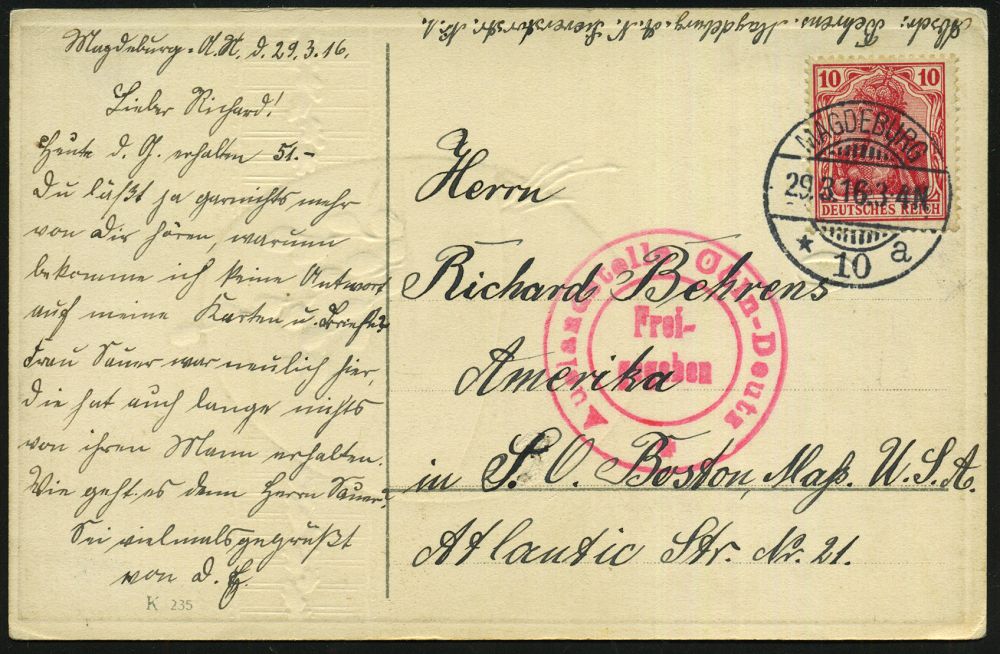 Absdr: Behrens. Magdeburg-A. N. Sieverstorstr. No. 1.
Magdeburg-A.N. d. 29.3.16.
Lieber Richard!
Heute d. G. erhalten 51.-
Du läßt ja garnichts mehr
von Dir hören, warum
bekomme ich keine Antwort
auf meine Karten u. Briefe?
Frau Sauer war neulich hier,
die hat auch lange nichts
von ihren Mann erhalten.
Wie geht es denn Herrn Sauer?
Sei vielmals gegrüßt
von d.
K 235
10 10
DEUTSCHES REICH
MAGDEBURG
29.3.16.3-4N
* 10 a
Herrn
Richard Behrens
Amerika
in S. O. Boston, Maß. U. S. A.
Atlantic Str. Nr. 21.
Auslandstelle Cöln-Deutz
Frei-
gegeben